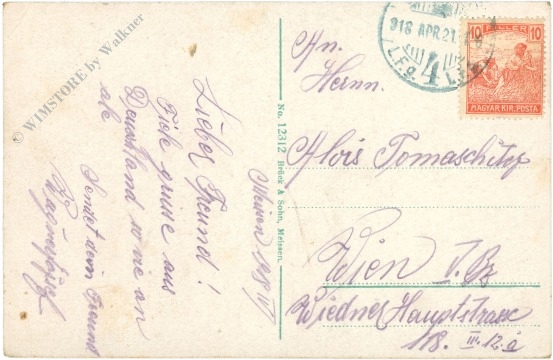 © WIMSTORE by Walkner
Lieber Freund!
Fiele grüsse aus
Deusland wie an
ale
Sendet dein Freund
No. 12312 Brück & Sohn, Meissen.
Meisen 19 8/IV
918 APR. 21.
4
10 FILLER 10
MAGYAR KIR. POSTA
An.
Herrn.
Alois Tomaschitz
Wien V. Bz
Wiedner Hauptstrasse
118. III. 12. a